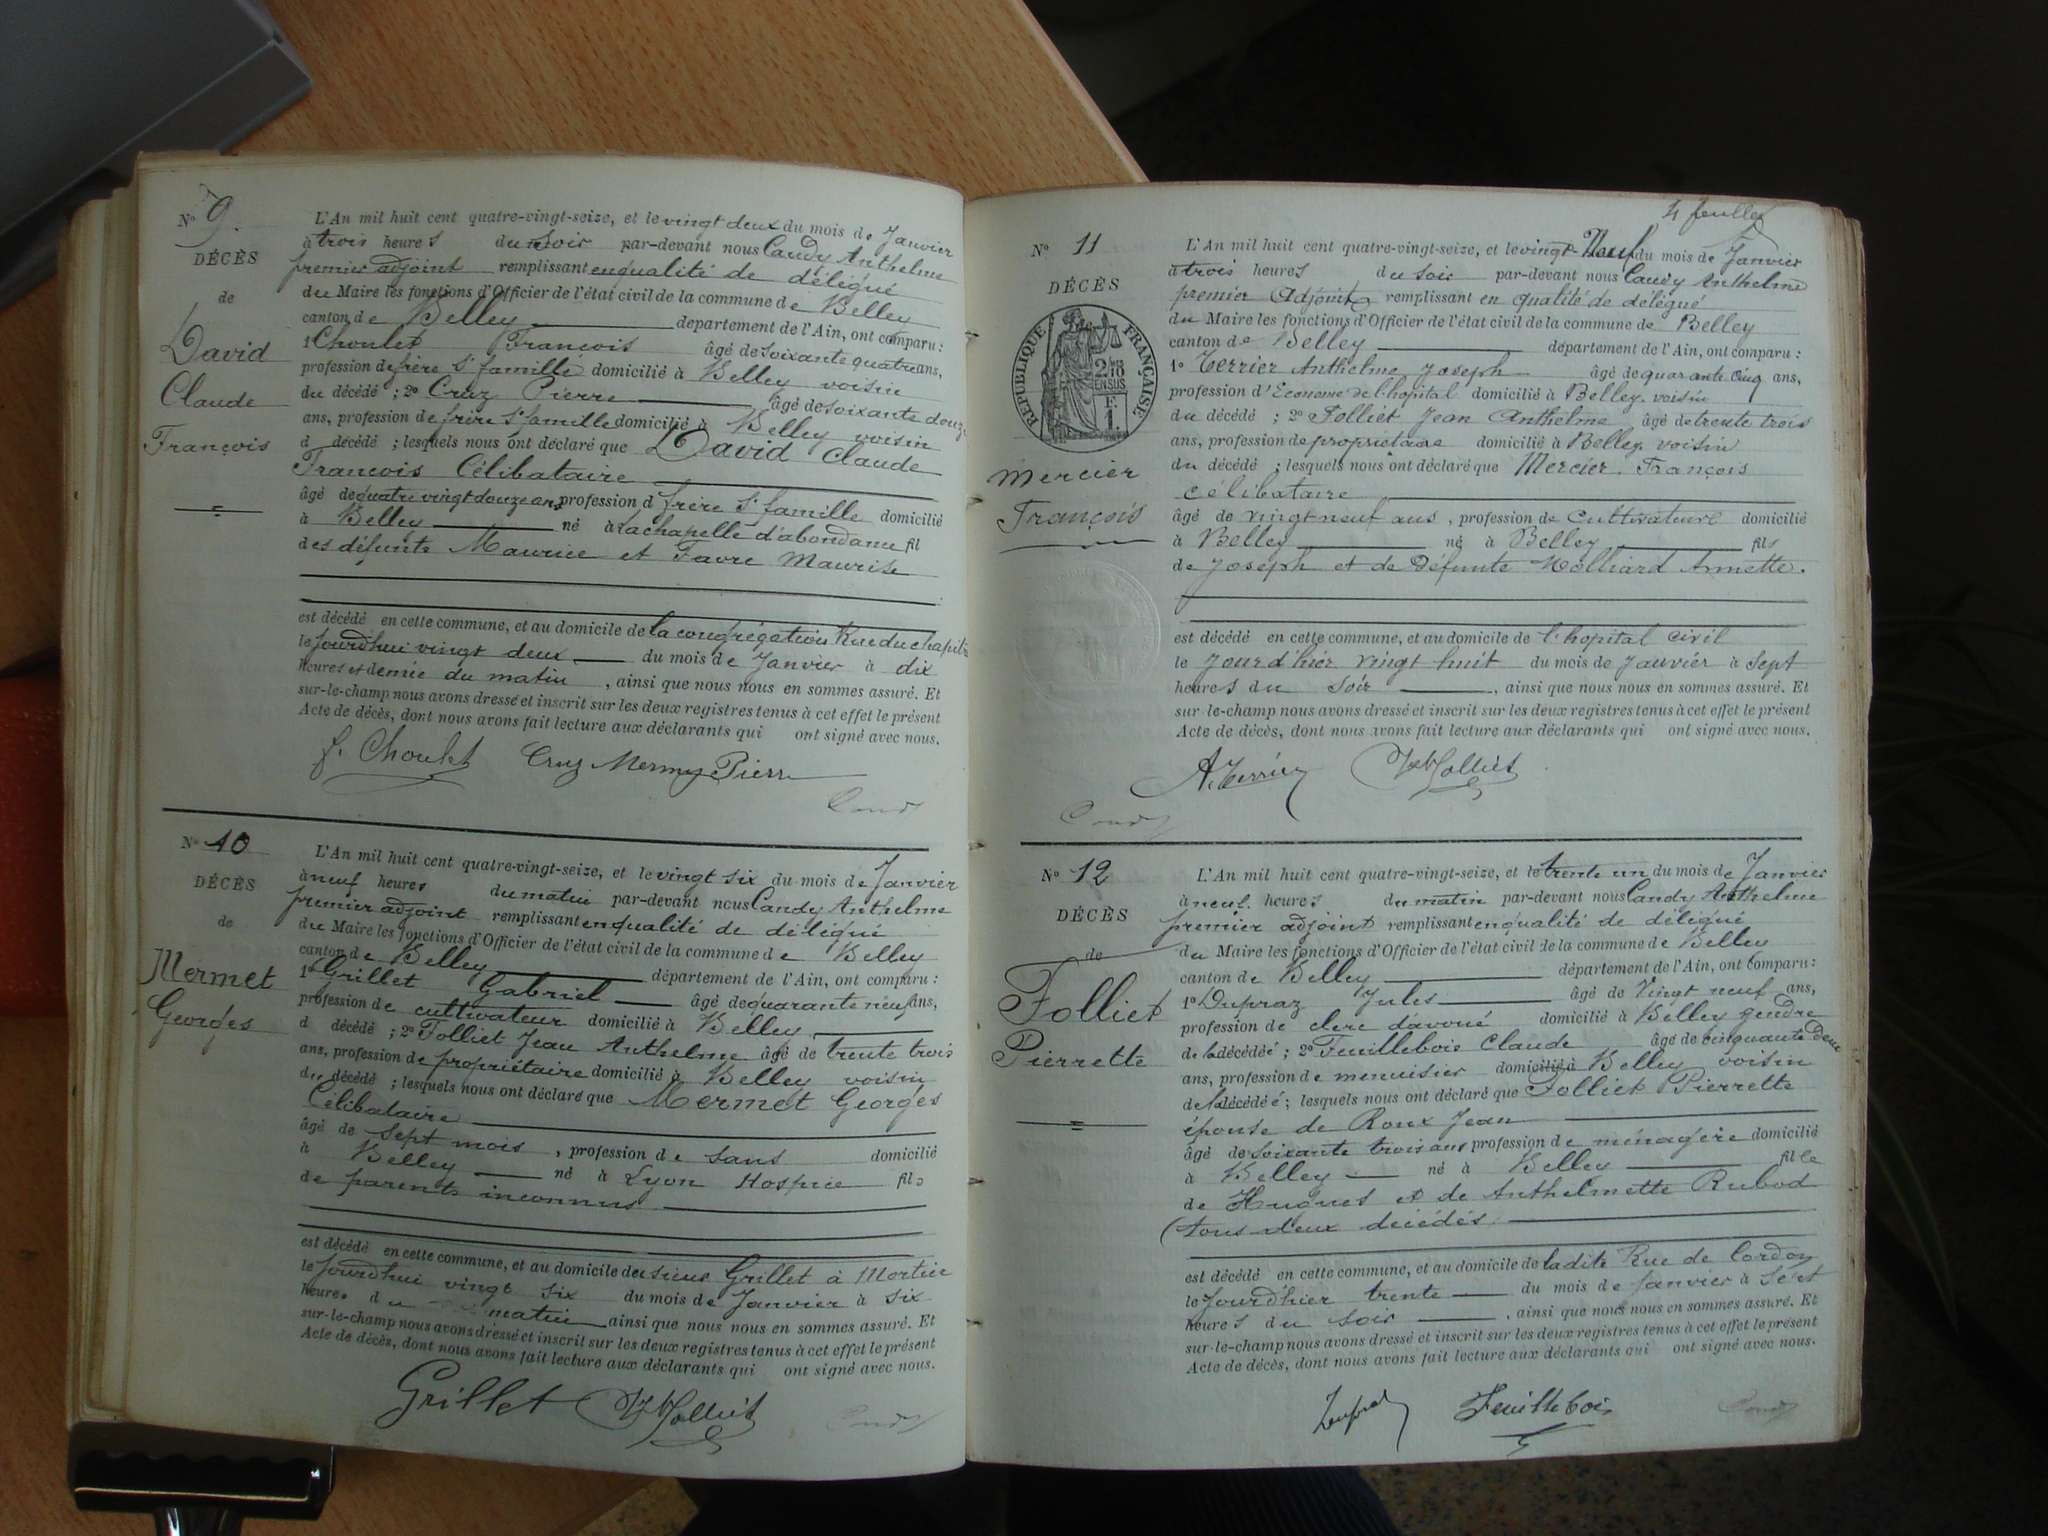 Nº 9.
DÉCÈS
de
David
Claude
François
L'An mil huit cent quatre-vingt-seize, et le vingt deux du mois de Janvier
à trois heures du soir par-devant nous Candy Anthelme
premier adjoint remplissant en qualité de délégué
du Maire les fonctions d'Officier de l'état civil de la commune de Belley
canton de Belley département de l'Ain, ont comparu :
1º Choulet François âgé de soixante quatre ans,
profession de frère Ste famille domicilié à Belley voisin
du décédé ; 2º Cruz Pierre âgé de soixante douze
ans, profession de frère Ste famille domicilié à Belley voisin
d décédé ; lesquels nous ont déclaré que David Claude
François Célibataire
âgé de quatre vingt douze ans profession d frère Ste famille domicilié
à Belley né à Lachapelle d'abondance fil
des défunts Maurice et Favre Maurise
est décédé en cette commune, et au domicile de la congrégation Rue du chapitre
le jourdhui vingt deux du mois de Janvier à dix
heures et demie du matin, ainsi que nous nous en sommes assuré. Et
sur-le-champ nous avons dressé et inscrit sur les deux registres tenus à cet effet le présent
Acte de décès, dont nous avons fait lecture aux déclarants qui ont signé avec nous.
f. Choulet Cruz Mermoz Pierre
Candy
Nº 10
DÉCÈS
de
Mermet
Georges
L'An mil huit cent quatre-vingt-seize, et le vingt six du mois de Janvier
à neuf heures du matin par-devant nous Candy Anthelme
premier adjoint remplissant en qualité de délégué
du Maire les fonctions d'Officier de l'état civil de la commune de Belley
canton de Belley département de l'Ain, ont comparu :
1º Grillet Gabriel âgé de quarante neuf ans,
profession de cultivateur domicilié à Belley
d décédé ; 2º Folliet Jean Anthelme âgé de trente trois
ans, profession de propriétaire domicilié à Belley voisin
du décédé ; lesquels nous ont déclaré que Mermet Georges
Célibataire
âgé de sept mois, profession de sans domicilié
à Belley né à Lyon Hospice fils
de parents inconnus
est décédé en cette commune, et au domicile du sieur Grillet à
le jourdhui vingt six du mois de Janvier à six
heures du matin ainsi que nous nous en sommes assuré. Et
sur-le-champ nous avons dressé et inscrit sur les deux registres tenus à cet effet le présent
Acte de décès, dont nous avons fait lecture aux déclarants qui ont signé avec nous.
Grillet Folliet
Candy
4 feuillet
Nº 11
DÉCÈS
RÉPUBLIQUE FRANÇAISE
2/10 EN SUS
F.
1.
Mercier
François
L'An mil huit cent quatre-vingt-seize, et le vingt-Neuf du mois de Janvier
à trois heures du soir par-devant nous Candy Anthelme
premier Adjoint remplissant en qualité de délégué
du Maire les fonctions d'Officier de l'état civil de la commune de Belley
canton de Belley département de l'Ain, ont comparu :
1º Terrier Anthelme Joseph âgé de quarante cinq ans,
profession d'Econome de l'hopital domicilié à Belley. voisin
du décédé ; 2º Folliet Jean Anthelme âgé de trente trois
ans, profession de propriétaire domicilié à Belley. voisin
du décédé ; lesquels nous ont déclaré que Mercier. François
célibataire
âgé de vingt neuf ans, profession de Cultivateur domicilié
à Belley né à Belley fils
de Joseph et de Défunte Molliard Annette.
est décédé en cette commune, et au domicile de l'hopital civil
le jour d'hier vingt huit du mois de Janvier à sept
heures du soir, ainsi que nous nous en sommes assuré. Et
sur-le-champ nous avons dressé et inscrit sur les deux registres tenus à cet effet le présent
Acte de décès, dont nous avons fait lecture aux déclarants qui ont signé avec nous.
A. Terrier Folliet
Candy
Nº 12
DÉCÈS
de
Folliet
Pierrette
L'An mil huit cent quatre-vingt-seize, et le trente un du mois de Janvier
à neuf heures du matin par-devant nous Candy Anthelme
premier adjoint remplissant en qualité de délégué
du Maire les fonctions d'Officier de l'état civil de la commune de Belley
canton de Belley département de l'Ain, ont comparu :
1º Dupraz Jules âgé de Vingt neuf ans,
profession de clerc d'avoué domicilié à Belley gendre
de la décédée ; 2º Feuillebois Claude âgé de cinquante deux
ans, profession de menuisier domicilié à Belley voisin
de la décédée ; lesquels nous ont déclaré que Folliet Pierrette
épouse de Roux Jean
âgé de soixante trois ans profession de ménagère domicilié
à Belley né à Belley fille
de Hugues et de Anthelmette Rubod
(tous deux décédés.
est décédé en cette commune, et au domicile de ladite Rue de Cordon
le jourd'hier trente du mois de Janvier à Sept
heures du soir, ainsi que nous nous en sommes assuré. Et
sur-le-champ nous avons dressé et inscrit sur les deux registres tenus à cet effet le présent
Acte de décès, dont nous avons fait lecture aux déclarants qui ont signé avec nous.
Dupraz Feuillebois
Candy